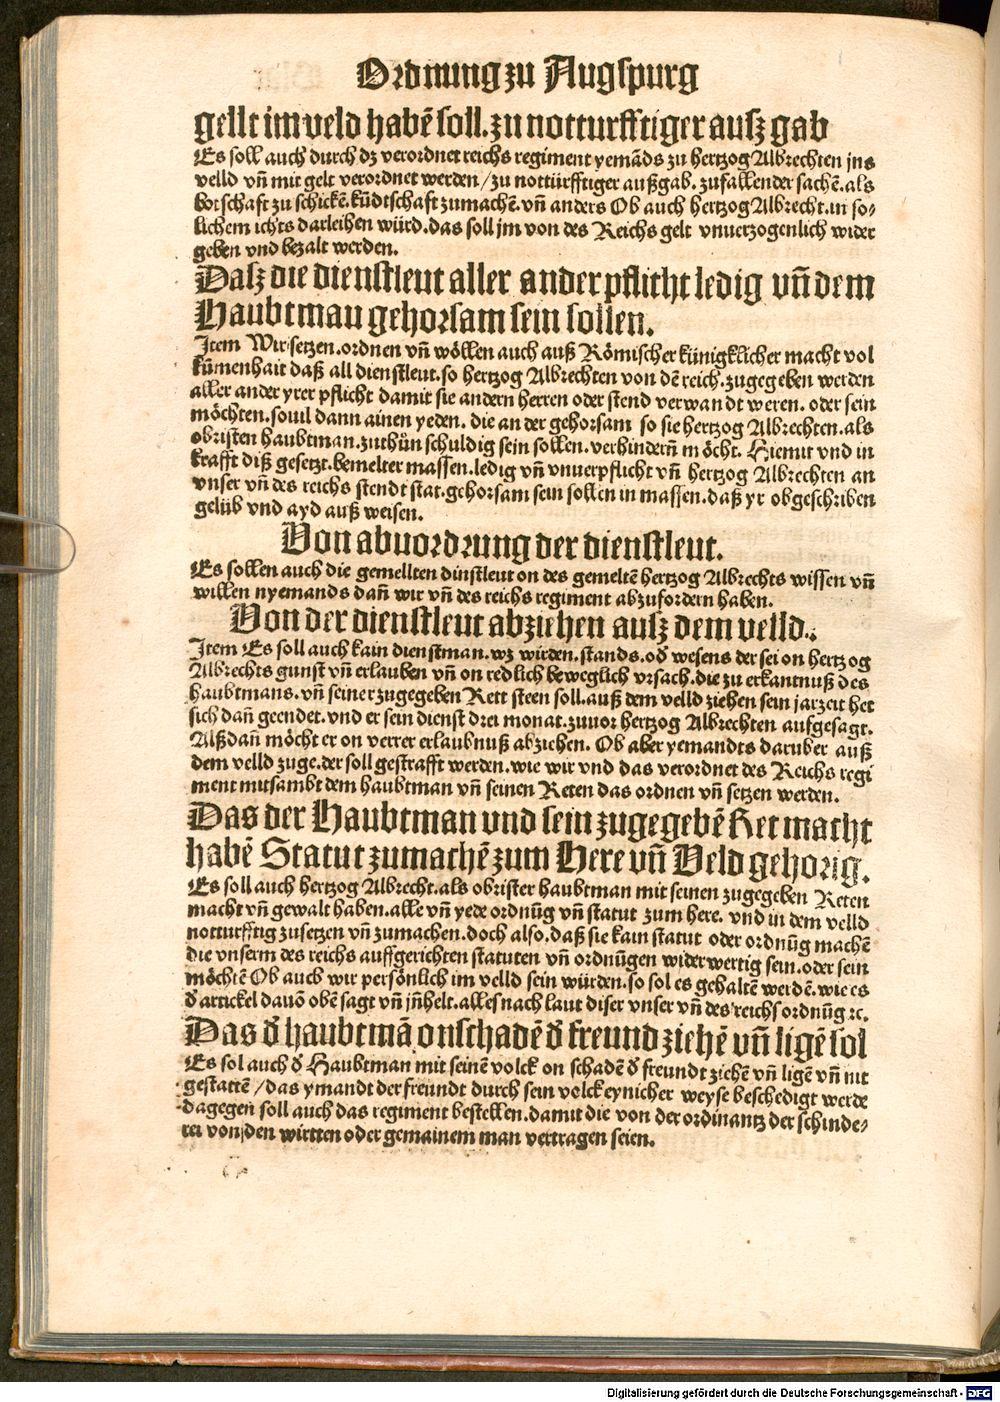 Ordnung zu Augspurg
gellt im veld habē soll. zu notturfftiger ausz gab
Es soll auch durch dz verordnet reichs regiment yemāds zu hertzog Albrechten jns
velld vn̄ mit gelt verordnet werden / zu nottürfftiger außgab. zufallender sachē. als
botschaft zu schickē. kūdtschaft zumachē. vn̄ anders Ob auch hertzog Albrecht. in so⸗
lichem ichts darleihen würd. das soll jm von des Reichs gelt vnuerzogenlich wider
geben vnd bezalt werden.
Dasz die dienstleut aller ander pflicht ledig vn̄ dem
Haubtman gehorsam sein sollen.
Item Wir setzen. ordnen vn̄ wöllen auch auß Römischer künigklicher macht vol
kūmenhait daß all dienstleut. so hertzog Albrechten von dē reich. zugegeben werden
aller ander yrer pflicht damit sie andern herren oder stend verwandt weren. oder sein
möchten. souil dann ainen yeden. die an der gehorsam so sie hertzog Albrechten. als
obristen haubtman. zuthůn schuldig sein sollen. verhindern̄ möcht. Hiemit vnd in
krafft diß gesetzt. bemelter massen. ledig vn̄ vnuerpflicht vn̄ hertzog Albrechten an
vnser vn̄ des reichs stendt stat. gehorsam sein sollen in massen. daß yr obgeschriben
gelüb vnd ayd auß weisen.
Von abuordrung der dienstleut.
Es sollen auch die gemellten dinstleut on des gemeltē hertzog Albrechts wissen vn̄
willen nyemands dan̄ wir vn̄ des reichs regiment abzufordern haben.
Von der dienstleut abziehen ausz dem velld.
Item Es soll auch kain dienstman. wz wirden. stands. oď wesens der sei on hertzog
Albrechts gunst vn̄ erlauben vn̄ on redlich beweglich vrsach. die zu erkantnuß des
haubtmans. vn̄ seiner zugegeben Rett steen soll. auß dem velld ziehen sein jarzeit het
sich dan̄ geendet. vnd er sein dienst drei monat. zuuor hertzog Albrechten aufgesagt.
Alßdan̄ möcht er on verrer erlaubnuß abziehen. Ob aber yemandts daruber auß
dem velld zuge. der soll gestrafft werden. wie wir vnd das verordnet des Reichs regi
ment mitsambt dem haubtman vn̄ seinen Reten das ordnen vn̄ setzen werden.
Das der Haubtman und sein zugegebē Ret macht
habē Statut zumachē zum Here vn̄ Veld gehorig.
Es soll auch hertzog Albrecht. als obrister haubtman mit seinen zugegeben Reten
macht vn̄ gewalt haben. alle vn̄ yede ordnūg vn̄ statut zum here. vnd in dem velld
notturfftig zusetzen vn̄ zumachen. doch also. daß sie kain statut oder ordnūg machē
die vnserm des reichs auffgerichten statuten vn̄ ordnūgen widerwertig sein. oder sein
möchtē Ob auch wir persönlich im velld sein würden. so sol es gehaltē werdē. wie es
ď artickel dauō obē sagt vn̄ jn̄helt. alles nach laut diser vnser vn̄ des reichs ordnūg ꝛc.
Das ď haubtmā on schadē ď freund ziehē vn̄ ligē sol
Es sol auch ď Haubtman mit seinē volck on schadē ď freundt ziehē vn̄ ligē vn̄ nit
gestattē / das ymandt der freundt durch sein volck eynicher weyse beschedigt werde
dagegen soll auch das regiment bestellen. damit die von der ordinantz der schinde⸗
rei von den wirtten oder gemainem man vertragen seien.
Digitalisierung gefördert durch die Deutsche Forschungsgemeinschaft - DFG